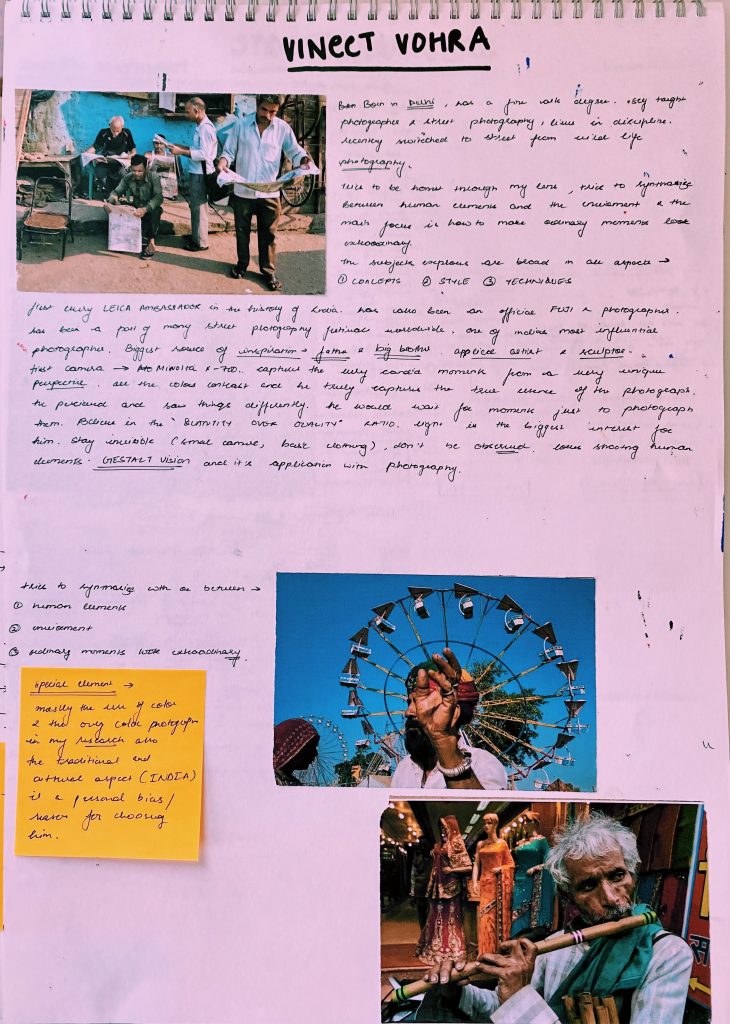 VINEET VOHRA
Born in Delhi, has a fine arts degree. self taught
photographer & street photography, lives in discipline.
recently switched to street from wild life
photography.
tries to be honest through my lens, tries to synmasize
between human elements and the enviement & the
main focus is how to make ordinary moments look
extraodinary.
the subjects explores are broad in all aspects →
① CONCEPTS ② STYLE ③ TECHNIQUES
first every LEICA AMBASSADOR in the history of India. has also been an official FUJI x photographer.
has been a part of many street photography festivals worldwide. one of indias most influential
photographer. Biggest source of inspiration → father & big brother. applied artist & sculptor.
first camera → MINOLTA X-700. captures the very candid moments from a very unique
perspective. all the colors contrast and he truly captures the true essence of the photograph.
he perceived and saw things differently. he would wait for moments just to photograph
them. Believes in the "QUANTITY OVER QUALITY" RATIO. light is the biggest interest for
him. Stay invisible (small camera, basic clothing), don't be observed. loves shooting human
elements. GESTALT Vision and it's application with photography.
tries to synmasize with or between →
① human elements
② enviement
③ ordinary moments with extraodinary.
special element →
mostly the use of color
& the only color photographer
in my research also
the traditional and
cultural aspect (INDIA)
is a personal bias/
reason for choosing
him.